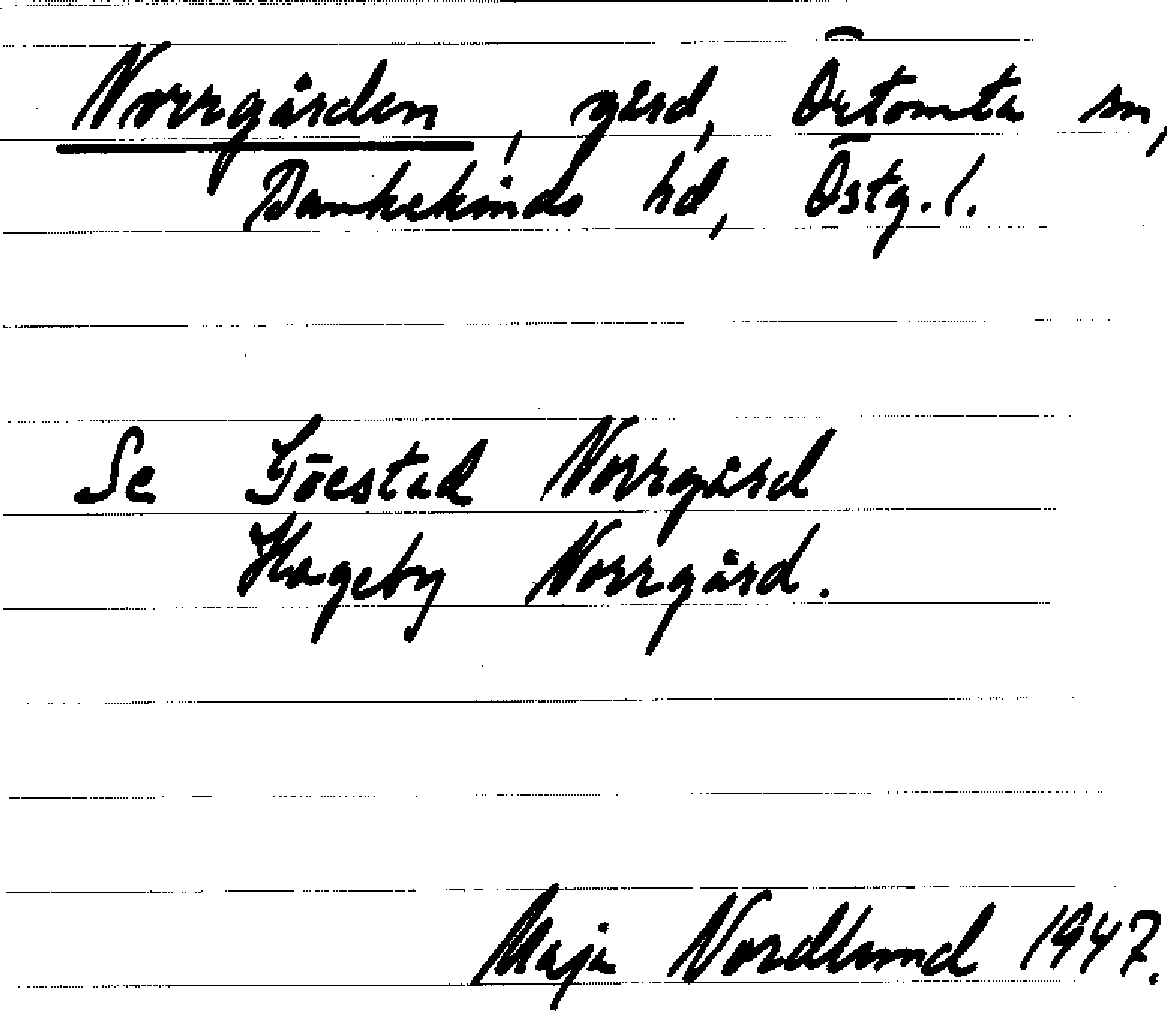 Norrgården, gård, Örtomta sn,
Bankekinds hd, Östg. l.
Se Göestad Norrgård
Hageby Norrgård.
Maja Nordlund 1947.